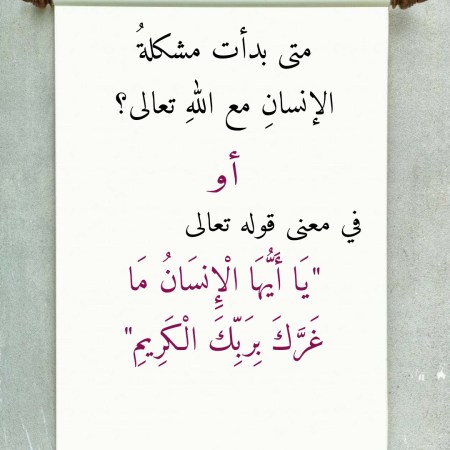 متى بدأت مشكلةُ
الإنسانِ مع اللهِ تعالى؟
أو
في معنى قوله تعالى
"يَا أَيُّهَا الْإِنسَانُ مَا
غَرَّكَ بِرَبِّكَ الْكَرِيمِ"